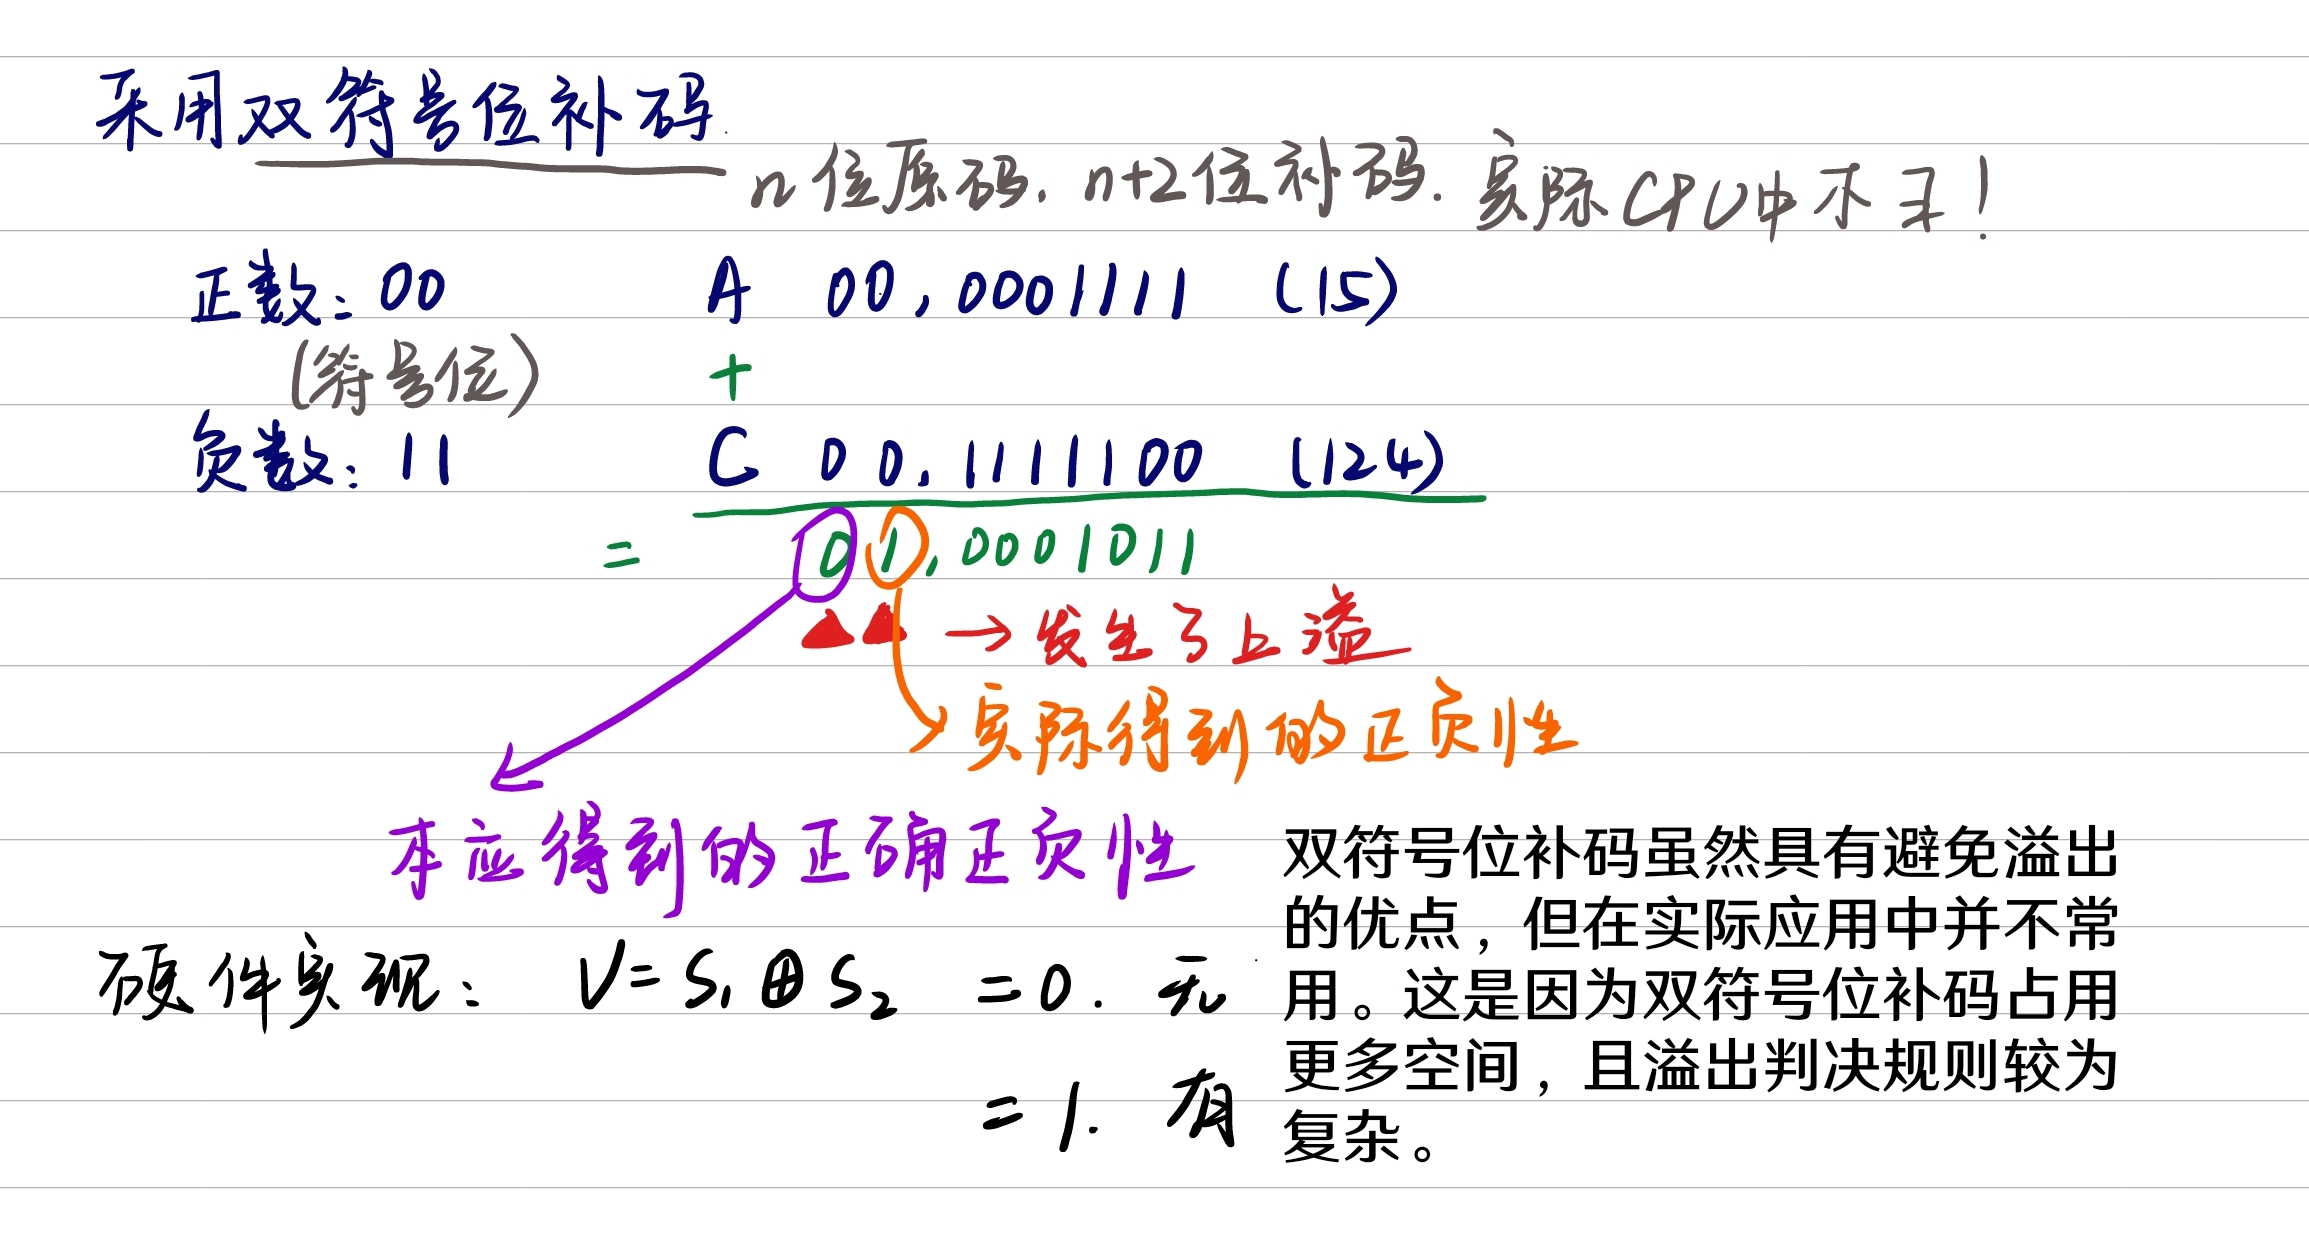 采用双符号位补码
n位原码. n+2位补码. 实际CPU中不用!
正数: 00 A 00,0001111 (15)
(符号位) +
负数: 11 C 00,1111100 (124)
= 01,0001011
→发生了上溢
实际得到的正负性
本应得到的正确正负性
硬件实现: V=S₁⊕S₂ =0. 无
=1. 有
双符号位补码虽然具有避免溢出
的优点，但在实际应用中并不常
用。这是因为双符号位补码占用
更多空间，且溢出判决规则较为
复杂。